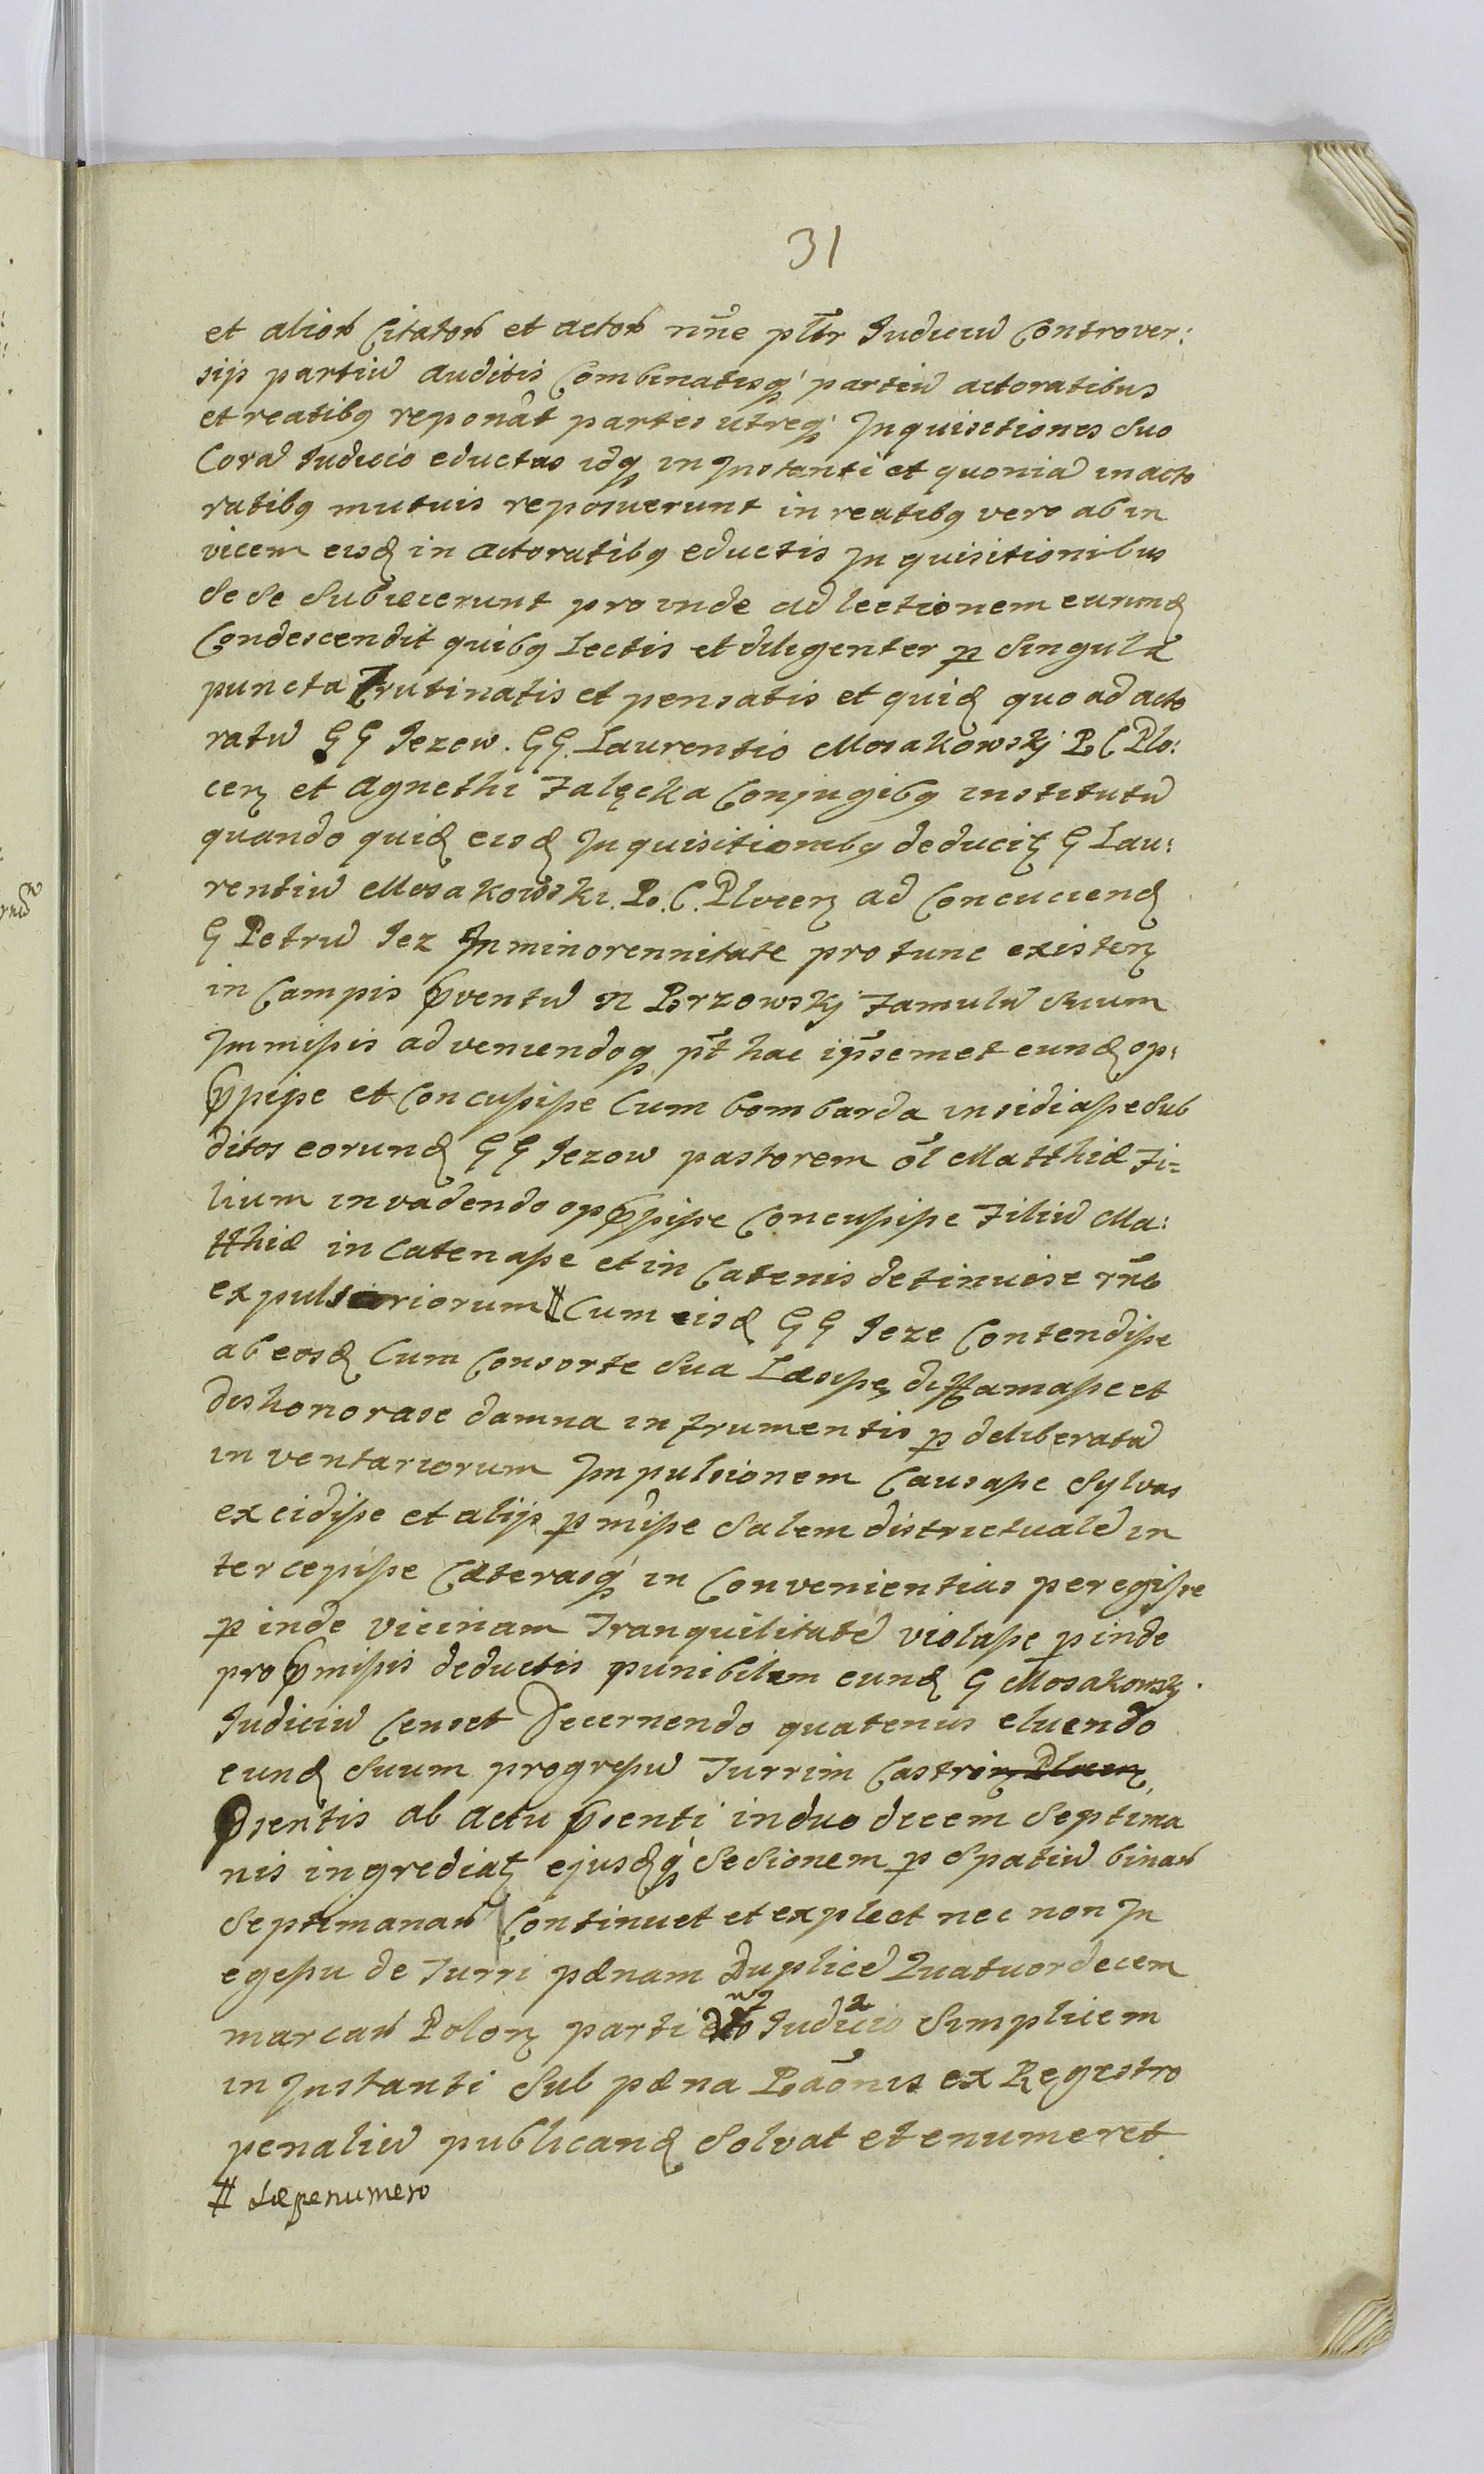 31
et alior Citator et actor nñe pltr Judiciu Controver:
sijs partiu auditis Combinatisq partiu actoratibus
et reatibq reponat partes utreq Inquisitiones Suo
Cora Judicio eductas idq in Instanti et quonia in acto
ratibq mutuis reposuerunt in reatibq vero ab in
vicem eisd in actoratibq eductis Inquisitionibus
Se Se Subiecerunt pro inde ad lectionem earund
Condescendit quibq Lectis et diligenter p Singula
puncta Trutinatis et pensatis et quid quo ad acto
ratu GG Jezew. GG. Laurentio Mosakowskj B C Plo:
cen et Agnethi Falęcka Conjugibq institutu
quando quid eisd Inquisitionibq deducit G Lau:
rentiu Mosakowski. B. C. Plocen ad Concuciend
G Petru Jez In minorennitate pro tunc existen
in Campis pventu N Brzowskj Famulu Suum
Immissis adveniendoq pt hac ipsemet eund op:
pssisse et Concussisse Cum bombarda insidiasse Sub
ditos eorund GG Jezow pastorem ol Matthiæ Fi=
lium invadendo oppssisse Concussisse Filiu Ma:
tthiæ in Catenasse et in Catenis detinuisse rñe
expulsioriorum # Cum eisd GG Jeze Contendisse
ab eosd Cum Consorte Sua Læsisse diffamasse et
dishonorase damna in frumentis p deliberata
inventariorum Impulsionem Causasse Sylvas
excidisse et alijs pmisse Salem districtuale in
tercepisse Cæterasq in Convenientias peregisse
p inde vicinam Tranquilitate violasse p inde
pro pmissis deductis punibilem eund G Mosakowskj.
Judiciu Censet Decernendo quatenus eluendo
eund Suum progressu Turrim Castri Plocen
psentis ab actu psenti in duodecem Septima
nis ingrediat ejusdq Sesionem p Spatiu binar
Septimanar Continuet et expleet nec non In
egessu de Turri pænam Duplice Quatuordecem
marcar Polon parti Judicio Simplicem
in Instanti Sub pæna Baonis ex Regestro
penaliu publicand Solvat et enumeret
# sæpenumero